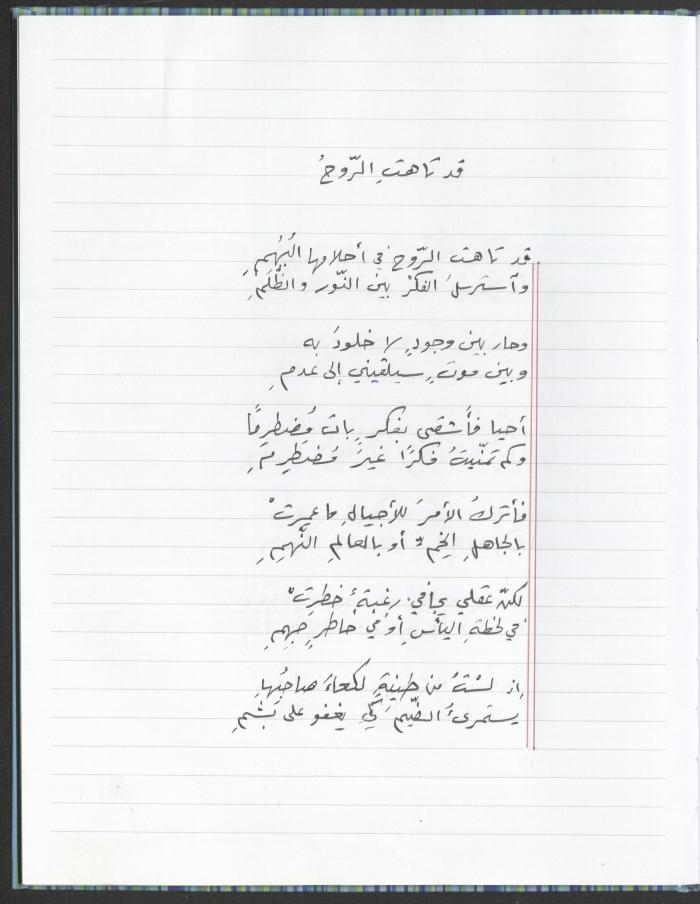 قد تاهتِ الرّوحُ
قد تاهت الرّوح في أحلامها البُهُمِ
وآسترسلَ الفكرُ بين النّور والظُّلَمِ
وحار بين وجودٍ لا خلودَ به
وبين موتٍ سيلقيني إلى عدمِ
أحيا فأَشقى بفكرٍ باتَ مُضطرِمًا
وكم تمنّيتُ فكرًا غيرَ مُضطرِمِ
فأتركُ الأمرَ للأجيالِ ما عمِرتْ
بالجاهلِ أو بالعالمِ النَّهِمِ
لكنّ عقلي يجافي رغبةً خطرتْ
في لحظةِ اليأسِ أو في خاطرٍ جهِمِ
إذ لسْتُ من طينةٍ لكعاءَ صاحبُها
يستمرىءُ الضّيمَ كي يغفو على بَشَمِ